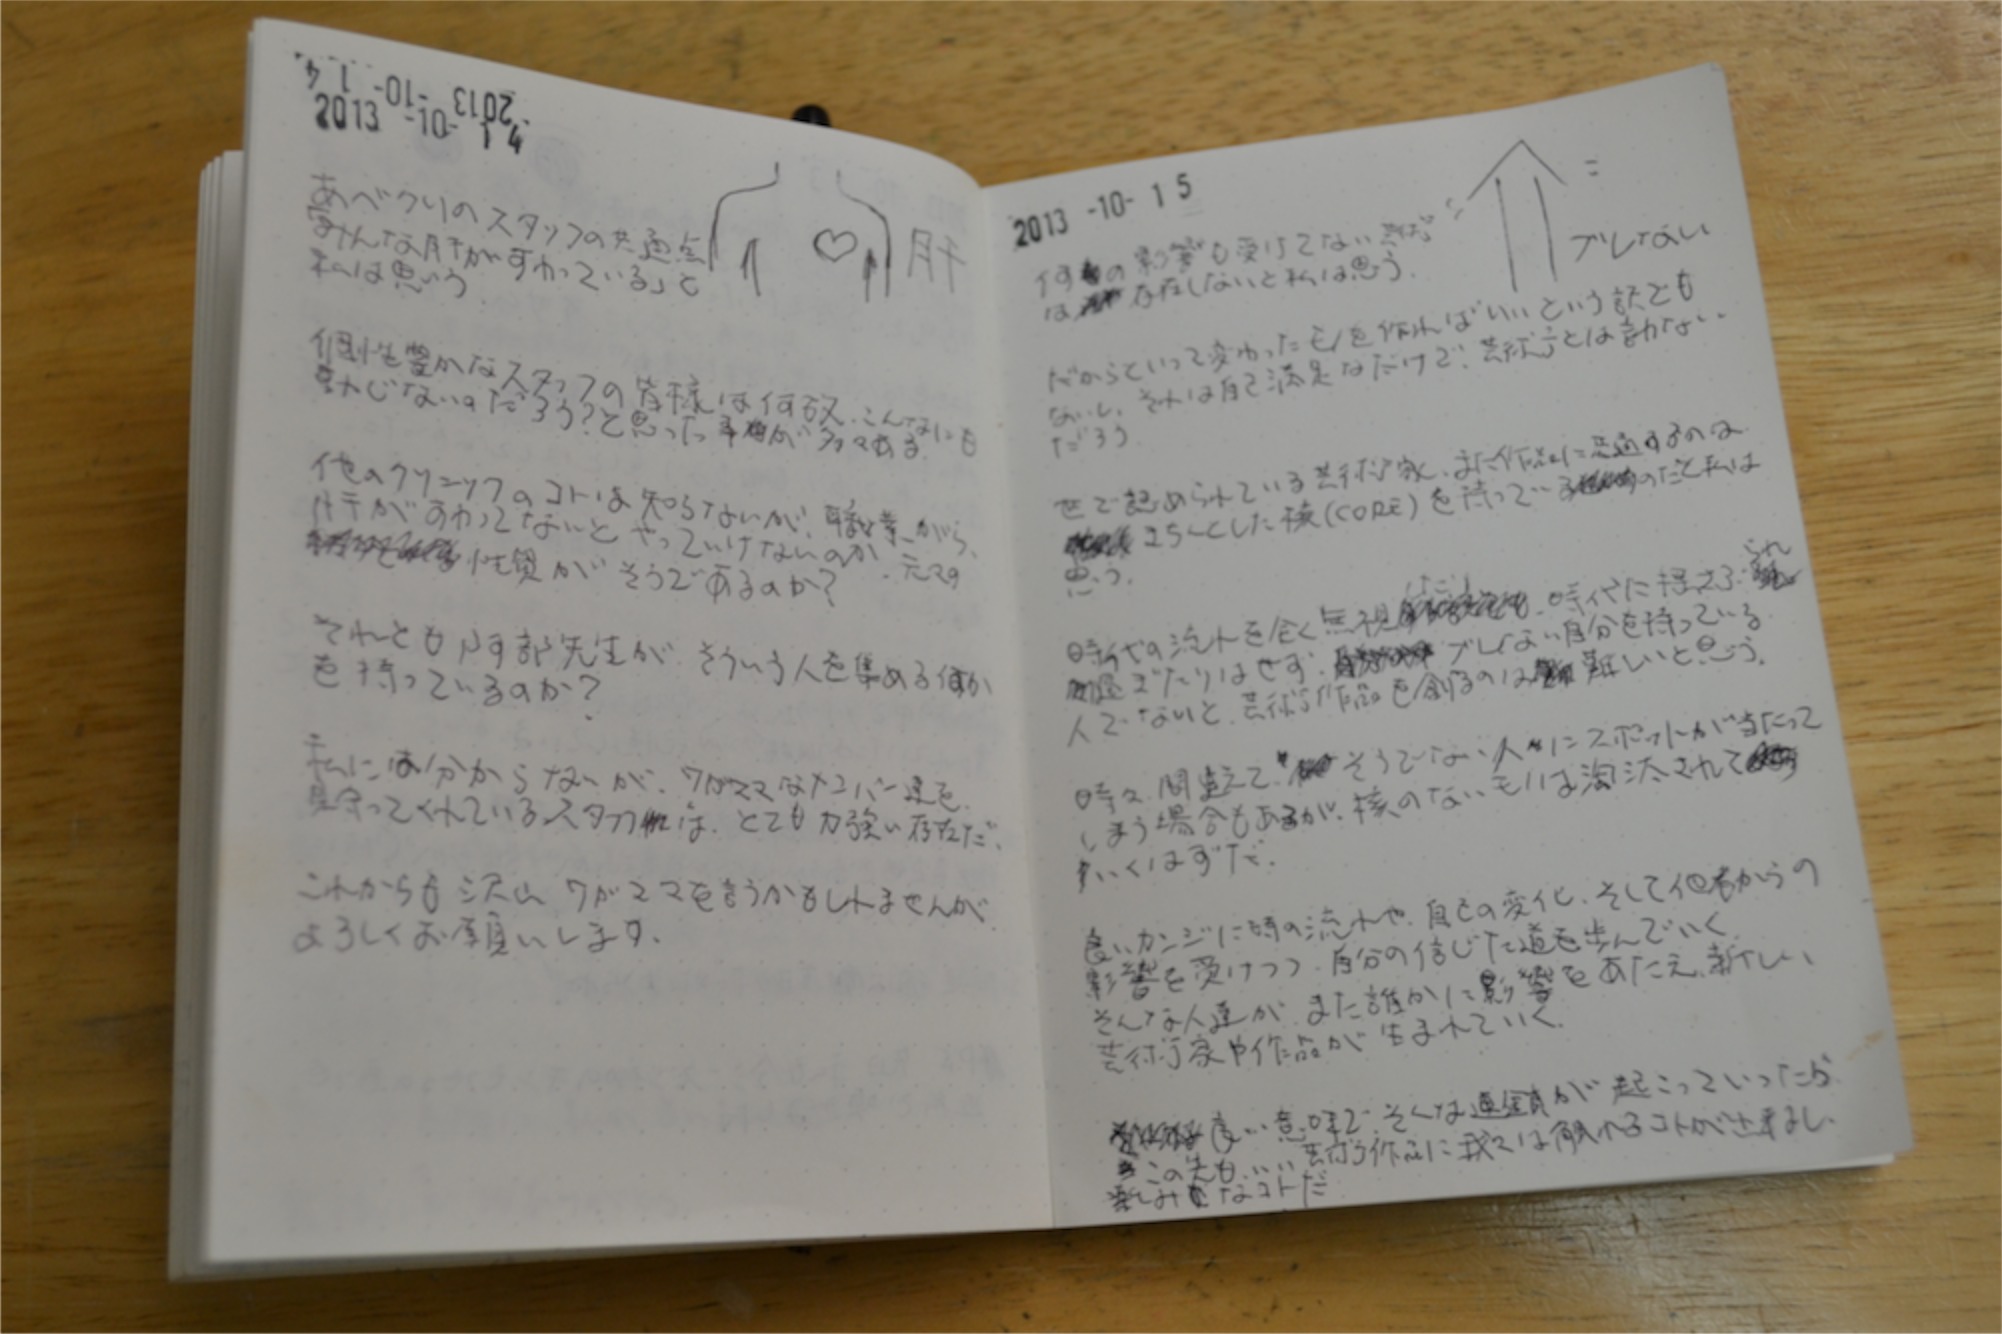 2013 -10- 1 4
2013 -10- 1 4
あべクリのスタッフの共通点
「みんな肝がすわっている」と
私は思う
肝
個性豊かなスタッフの皆様は何故、こんなにも
動じないのだろう?と思った事が多々ある
他のクリニックのコトは知らないが、職業がら、
肝がすわってないとやっていけないのか、元々の
性質がそうであるのか?
それとも阿部先生が、そういう人を集める何か
を持っているのか?
私には分からないが、ワガママなメンバー達を、
見守ってくれているスタッフは、とても力強い存在だ、
これからも沢山ワガママを言うかもしれませんが、
よろしくお願いします。
2013 -10- 1 5
ブレない
何の影響も受けてない芸術
は存在しないと私は思う.
だからといって変わったモノを作ればいいという訳でも
ないし、それは自己満足なだけで、芸術とは言わない
だろう
世で認められている芸術家、また作品に共通するのは
きちんとした核(CORE)を持っているのだと私は
思う.
時代の流れを全く無視したり、時代に捉えられ
過ぎたりはせず、ブレない自分を持っている
人でないと、芸術作品を創るのは難しいと思う.
時々、間違えて、そうでない人々にスポットが当たって
しまう場合もあるが、核のないモノは淘汰されて
いくはずだ.
良いカンジに時の流れや、自己の変化、そして他者からの
影響を受けつつ、自分の信じた道を歩んでいく
そんな人達が、また誰かに影響をあたえ、新しい
芸術家や作品が生まれていく.
良い意味で、そんな連鎖が起こっていったら
この先も、いい芸術作品に我々は触れるコトが出来るし、
楽しみなコトだ